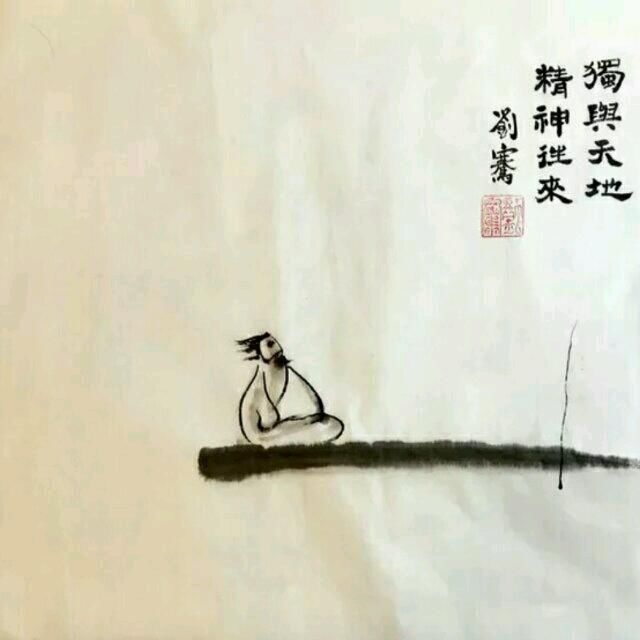 獨與天地
精神往來
劉騫